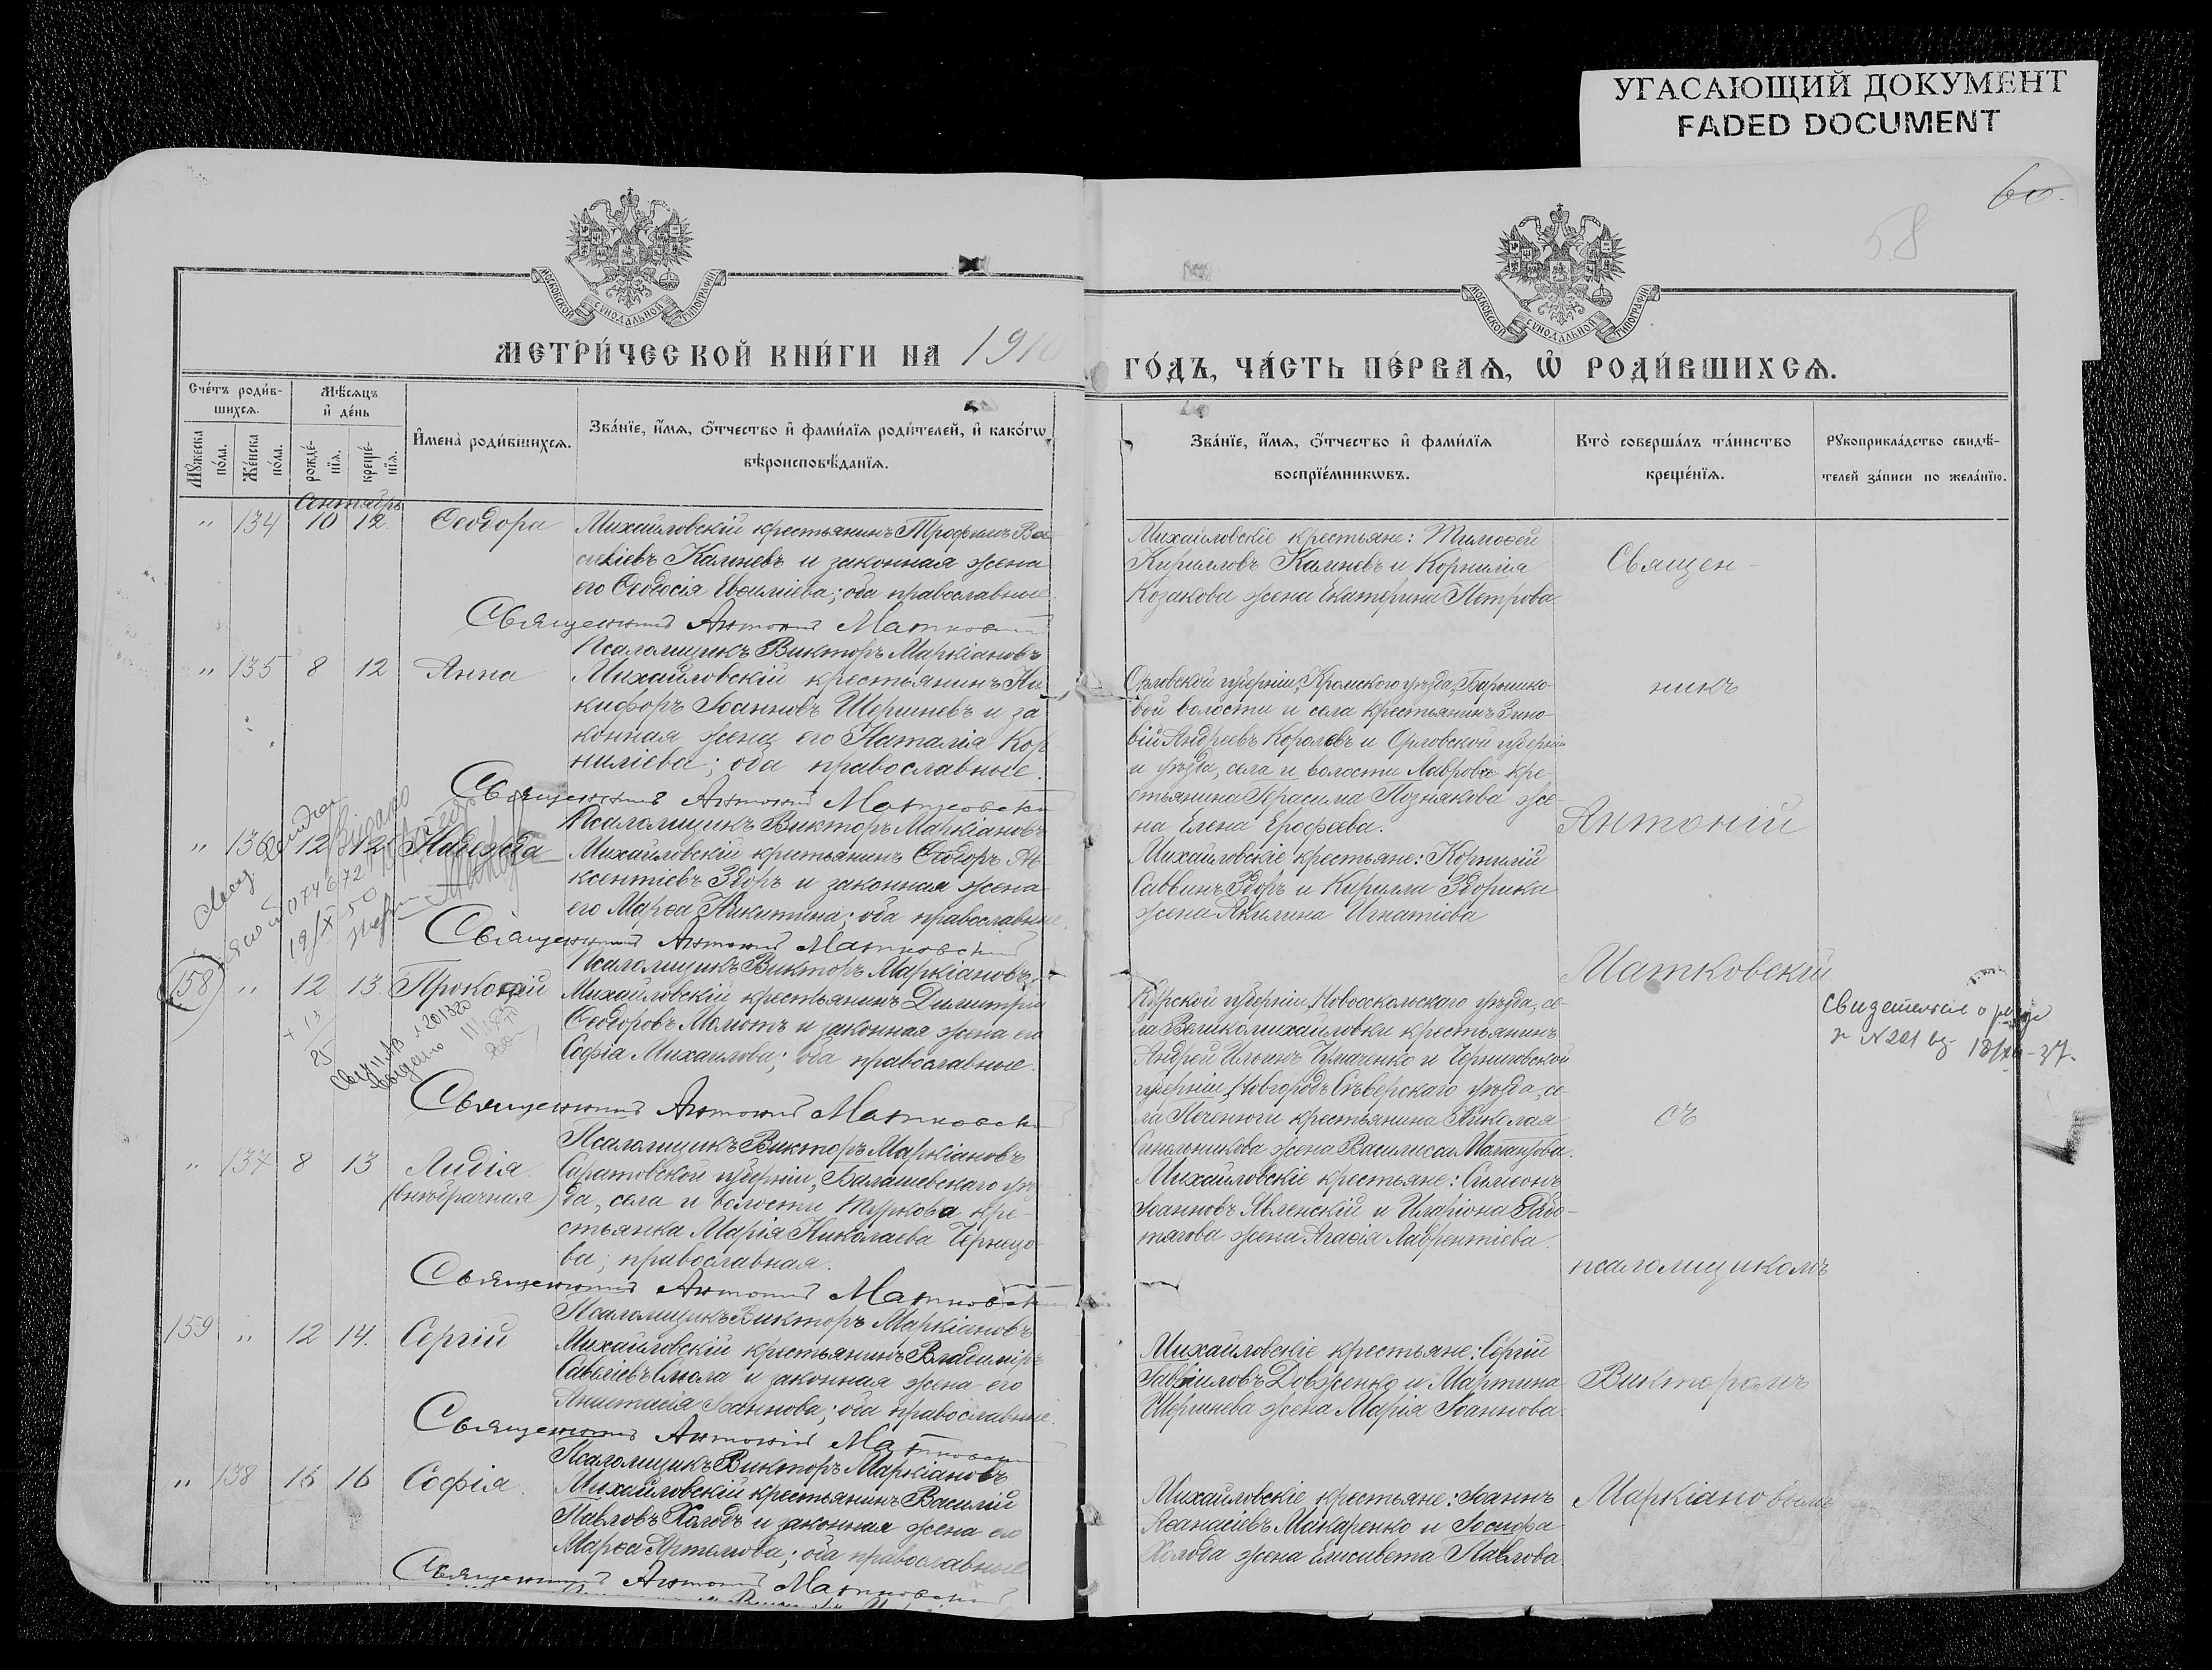 УГАСАЮЩИЙ ДОКУМЕНТ
FADED DOCUMENT
60.
58
МОСКОВСКОЙ СѴНОДАЛЬНОЙ ТИПОГРАФІИ
МОСКОВСКОЙ СѴНОДАЛЬНОЙ ТИПОГРАФІИ
МЕТРИ́ЧЕСКОЙ КНИ́ГИ НА 1910
ГО́ДЪ, ЧА́СТЬ ПЕ́РВАѦ, Ѡ҆ РОДИ́ВШИХСѦ.
Сче́тъ роди́в-
шихсѧ.
Мꙋ́жеска по́ла.
Же́нска по́ла.
Мѣ́сѧцъ
и҆ де́нь
рожде́-
нїѧ.
креще́-
нїѧ.
И҆мена̀ роди́вшихсѧ.
Зва́нїе, и҆́мѧ, ѻ҆́тчество и҆ фами́лїѧ роди́телей, и҆ како́гѡ
вѣроисповѣ́данїѧ.
Зва́нїе, и҆́мѧ, ѻ҆́тчество и҆ фами́лїѧ
воспрїе́мникѡвъ.
Кто̀ соверша́лъ та́инство
креще́нїѧ.
Рꙋкоприкла́дство свидѣ́-
телей за́писи по жела́нїю.
Сентябрь
" 134 10 12. Ѳеодора
Михайловскій крестьянинъ Трофимъ Ва-
силіевъ Калиневъ и законная жена
его Ѳеодосія Евѳиміева; оба православные.
Священникъ Антоній Матковскій
Псаломщикъ Викторъ Маркіановъ
Михайловскіе крестьяне: Тимоѳей
Кирилловъ Калиневъ и Корнилія
Козакова жена Екатерина Петрова.
Священ-
" 135 8 12 Анна
Михайловскій крестьянинъ Ни-
кифоръ Іоанновъ Шершневъ и за
конная жена его Наталія Кор
ниліева; оба православные.
Священникъ Антоній Матковскій
Псаломщикъ Викторъ Маркіановъ
Орловской губерніи, Кромского уѣзда,
вой волости и села крестьянинъ Зино-
вій Андреевъ Королевъ и Орловской губерніи
и уѣзда, села и волости Лаврова кре-
стьянина Герасима Познякова же-
на Елена Ерофеева.
никъ
" 136 12 12 Надежда
Михайловскій крестьянинъ Ѳеодоръ Ав-
ксентіевъ Здоръ и законная жена
его Марѳа Никитина; оба православные.
Священникъ Антоній Матковскій
Псаломщикъ Викторъ Маркіановъ
Михайловскіе крестьяне: Корнилій
Саввинъ Здоръ и Кирилла Здорика
жена Акилина Игнатіева
Антоній
158 " 12 13. Прокопій
Михайловскій крестьянинъ Димитрій
Ѳеодоровъ Молотъ и законная жена его
Софія Михаилова; оба православные.
Священникъ Антоній Матковскій
Псаломщикъ Викторъ Маркіановъ
Курской губерніи, Новооскольскаго уѣзда, се-
ла Великомихайловки крестьянинъ
Андрей Ильинъ Чумаченко и Черниговской
губерніи, Новгородъ Сѣверскаго уѣзда, се-
ла Печенюги крестьянина Николая
Синельникова жена Василисса
Матковскій
съ
" 137 8 13 Лидія
(внѣбрачная)
Саратовской губерніи, Балашевскаго уѣз-
да, села и волости Туркова кре-
стьянка Марія Николаева Чернецо
ва; православная.
Священникъ Антоній Матковскій
Псаломщикъ Викторъ Маркіановъ
Михайловскіе крестьяне: Симеонъ
Іоанновъ Явленскій и Иларіона Рабо-
тягова жена Агаѳія Лаврентіева.
псаломщикомъ
159 " 12 14. Сергій
Михайловскій крестьянинъ Владиміръ
Савеліевъ Смола и законная жена его
Анастасія Іоаннова; оба православные.
Священникъ Антоній Матковскій
Псаломщикъ Викторъ Маркіановъ
Михайловскіе крестьяне: Сергій
Гавріиловъ Довженко и Мартина
Шершнева жена Марія Іоаннова.
Викторомъ
" 138 15 16 Софія.
Михайловскій крестьянинъ Василій
Павловъ Холодъ и законная жена его
Марѳа Артемова; оба православные
Священникъ Антоній Матковскій
Михайловскіе крестьяне: Іоаннъ
Аѳанасіевъ Макаренко и Іосифа
Холода жена Елисавета Павлова
Маркіановымъ